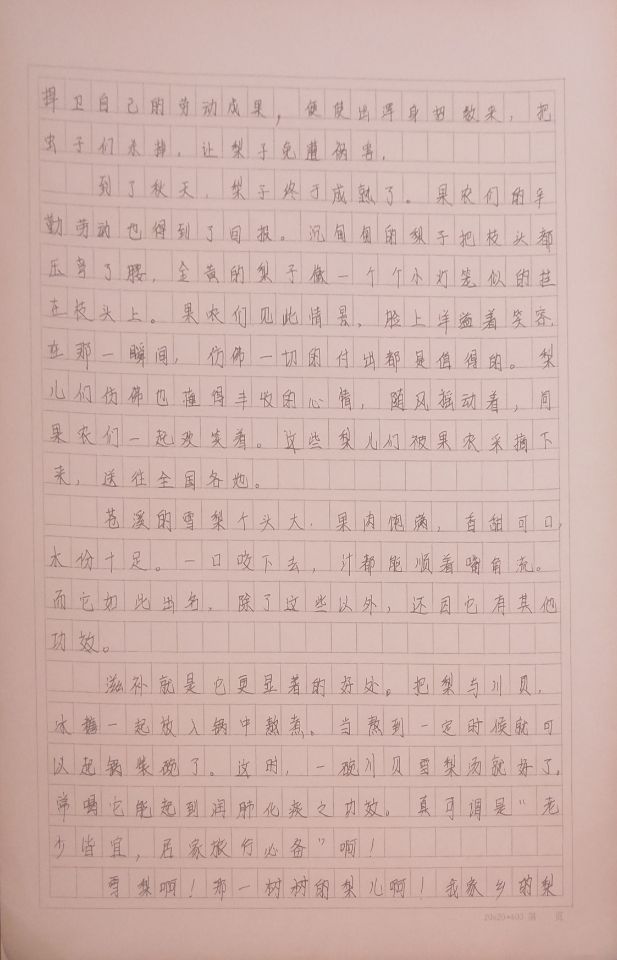 捍卫自己的劳动成果，便使出浑身招数来，把
虫子们杀掉，让梨子免遭祸害。
到了秋天，梨子终于成熟了。果农们的辛
勤劳动也得到了回报。沉甸甸的梨子把枝头都
压弯了腰，金黄的梨子像一个个小灯笼似的挂
在枝头上。果农们见此情景，脸上洋溢着笑容，
在那一瞬间，仿佛一切的付出都是值得的。梨
儿们仿佛也懂得丰收的心情，随风摇动着，同
果农们一起欢笑着。这些梨儿们被果农采摘下
来，送往全国各地。
苍溪的雪梨个头大，果肉饱满，香甜可口，
水份十足。一口咬下去，汁都能顺着嘴角流。
而它如此出名，除了这些以外，还因它有其他
功效。
滋补就是它更显著的好处。把梨与川贝，
冰糖一起放入锅中熬煮。当熬到一定时候就可
以起锅装碗了。这时，一碗川贝雪梨汤就好了，
常喝它能起到润肺化痰之功效。真可谓是“老
少皆宜，居家旅行必备”啊！
雪梨啊！那一树树的梨儿啊！我家乡的梨
20x20=400 第 页